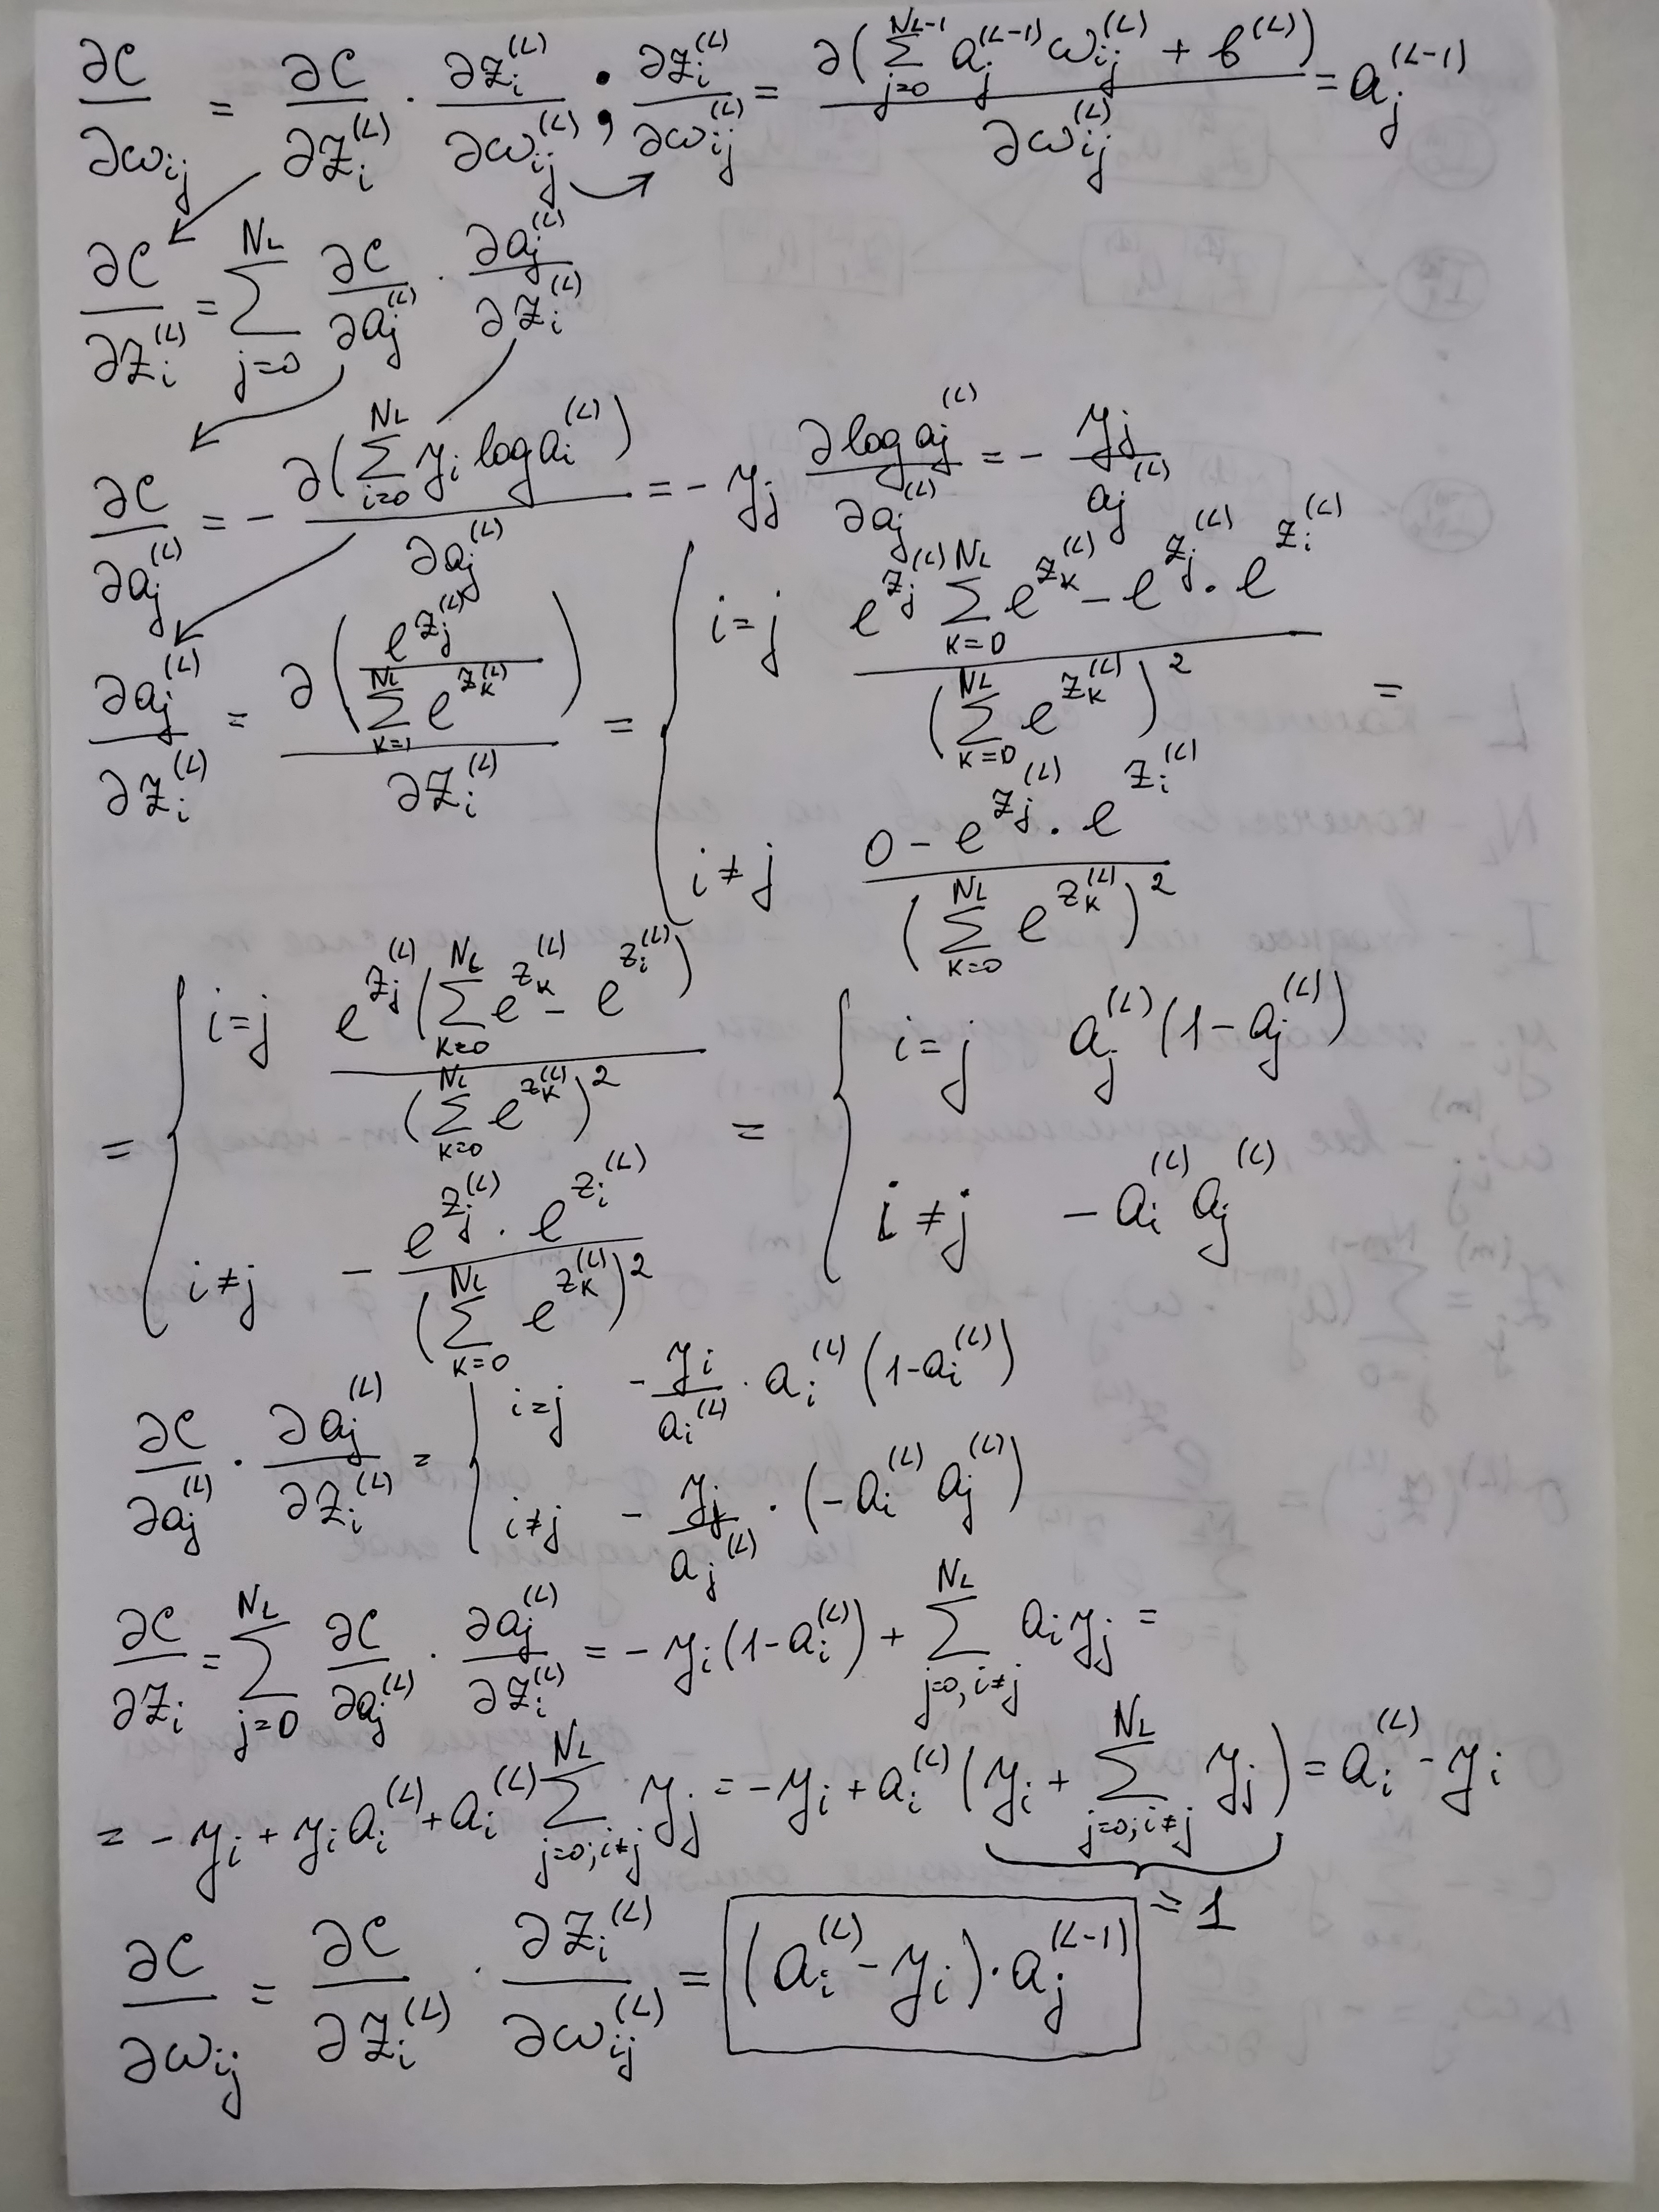 ∂C/∂ω_ij = ∂C/∂z_i^(L) · ∂z_i^(L)/∂ω_ij^(L) ; ∂z_i^(L)/∂ω_ij^(L) = ∂(∑_{j=0}^{N_{L-1}} a_j^(L-1) ω_ij^(L) + b^(L))/∂ω_ij^(L) = a_j^(L-1)
∂C/∂z_i^(L) = ∑_{j=0}^{N_L} ∂C/∂a_j^(L) · ∂a_j^(L)/∂z_i^(L)
∂C/∂a_j^(L) = - ∂(∑_{i=0}^{N_L} y_i log a_i^(L))/∂a_j^(L) = - y_j ∂log a_j^(L)/∂a_j^(L) = - y_j/a_j^(L)
∂a_j^(L)/∂z_i^(L) = ∂(e^{z_j^(L)}/∑_{k=1}^{N_L} e^{z_k^(L)})/∂z_i^(L) = { i=j (e^{z_j^(L)} ∑_{k=0}^{N_L} e^{z_k^(L)} - e^{z_j^(L)} · e^{z_i^(L)})/(∑_{k=0}^{N_L} e^{z_k^(L)})^2 =
i≠j (0 - e^{z_j^(L)} · e^{z_i^(L)})/(∑_{k=0}^{N_L} e^{z_k^(L)})^2
= { i=j e^{z_j^(L)}(∑_{k=0}^{N_L} e^{z_k^(L)} - e^{z_i^(L)})/(∑_{k=0}^{N_L} e^{z_k^(L)})^2 = { i=j a_j^(L) (1-a_j^(L))
i≠j - e^{z_j^(L)} · e^{z_i^(L)}/(∑_{k=0}^{N_L} e^{z_k^(L)})^2 i≠j - a_i^(L) a_j^(L)
∂C/∂a_j^(L) · ∂a_j^(L)/∂z_i^(L) = { i=j - y_i/a_i^(L) · a_i^(L) (1-a_i^(L))
i≠j - y_j/a_j^(L) · (-a_i^(L) a_j^(L))
∂C/∂z_i = ∑_{j=0}^{N_L} ∂C/∂a_j^(L) · ∂a_j^(L)/∂z_i^(L) = - y_i (1-a_i^(L)) + ∑_{j=0, i≠j}^{N_L} a_i y_j =
= - y_i + y_i a_i^(L) + a_i^(L) ∑_{j=0; i≠j}^{N_L} y_j = - y_i + a_i^(L) (y_i + ∑_{j=0; i≠j}^{N_L} y_j) = a_i^(L) - y_i
= 1
∂C/∂ω_ij = ∂C/∂z_i^(L) · ∂z_i^(L)/∂ω_ij^(L) = (a_i^(L) - y_i) · a_j^(L-1)